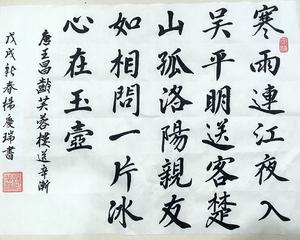 寒雨連江夜入
吴平明送客楚
山孤洛陽親友
如相問一片冰
心在玉壺
唐王昌齡芙蓉樓送辛漸
戊戌新春楊慶瑞書